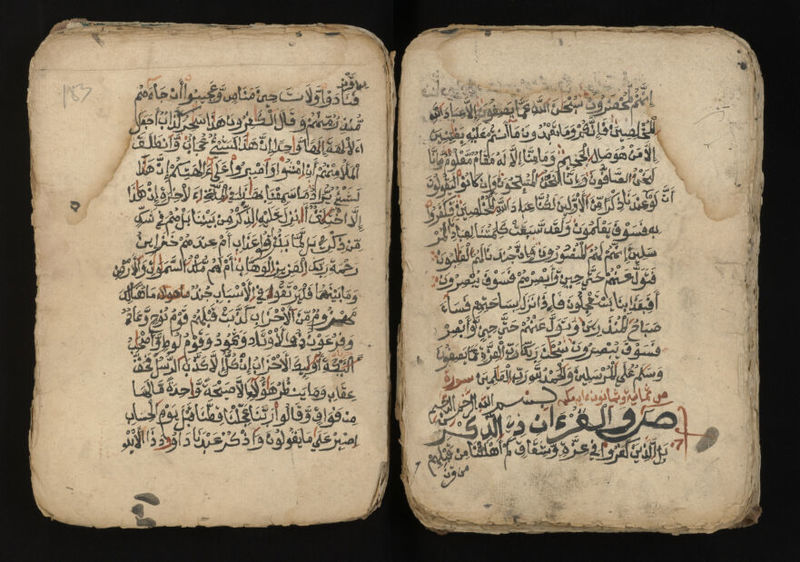 إنهم لمحضرون سبحن الله عما يصفون إلا عباد الله
المخلصين فإنكم وما تعبدون ما أنتم عليه بفتنين
إلا من هو صال الجحيم وما منا إلا له مقام معلوم وإنا
لنحن الصافون وإنا لنحن المسبحون وإن كانوا ليقولون
لو أن عندنا ذكرا من الأولين لكنا عباد الله المخلصين فكفروا
به فسوف يعلمون ولقد سبقت كلمتنا لعبادنا المر
سلين إنهم لهم المنصورون وإن جندنا لهم الغلبون
فتول عنهم حتى حين وأبصرهم فسوف يبصرون
أفبعذابنا يستعجلون فإذا نزل بساحتهم فساء
صباح المنذرين وتول عنهم حتى حين وأبصر
فسوف يبصرون سبحن ربك رب العزة عما يصفون
وسلم على المرسلين والحمد لله رب العلمين سورة
بسم الله الرحمن الرحيم
ص والقرءان ذي الذكر
بل الذين كفروا في عزة وشقاق كم أهلكنا من قبلهم
من قرن
من قرن
فنادوا ولات حين مناص وعجبوا أن جاءهم
منذر منهم وقال الكفرون هذا سحر كذاب أجعل
الألهة إلها واحدا إن هذا لشيء عجاب وانطلق
الملأ منهم أن امشوا واصبروا على ءالهتكم إن هذا
لشيء يراد ما سمعنا بهذا في الملة الأخرة إن هذا
إلا اختلق أءنزل عليه الذكر من بيننا بل هم في شك
من ذكري بل لما يذوقوا عذاب أم عندهم خزاين
رحمة ربك العزيز الوهاب أم لهم ملك السموت والأرض
وما بينهما فليرتقوا في الأسباب جند ما هنالك
مهزوم من الأحزاب كذبت قبلهم قوم نوح وعاد
وفرعون ذو الأوتاد وثمود وقوم لوط وأصحب
ليكة أوليك الأحزاب إن كل إلا كذب الرسل فحق
عقاب وما ينظر هؤلاء إلا صيحة وحدة ما لها
من فواق وقالوا ربنا عجل لنا قطنا قبل يوم الحساب
اصبر على ما يقولون واذكر عبدنا داود ذا الأيد